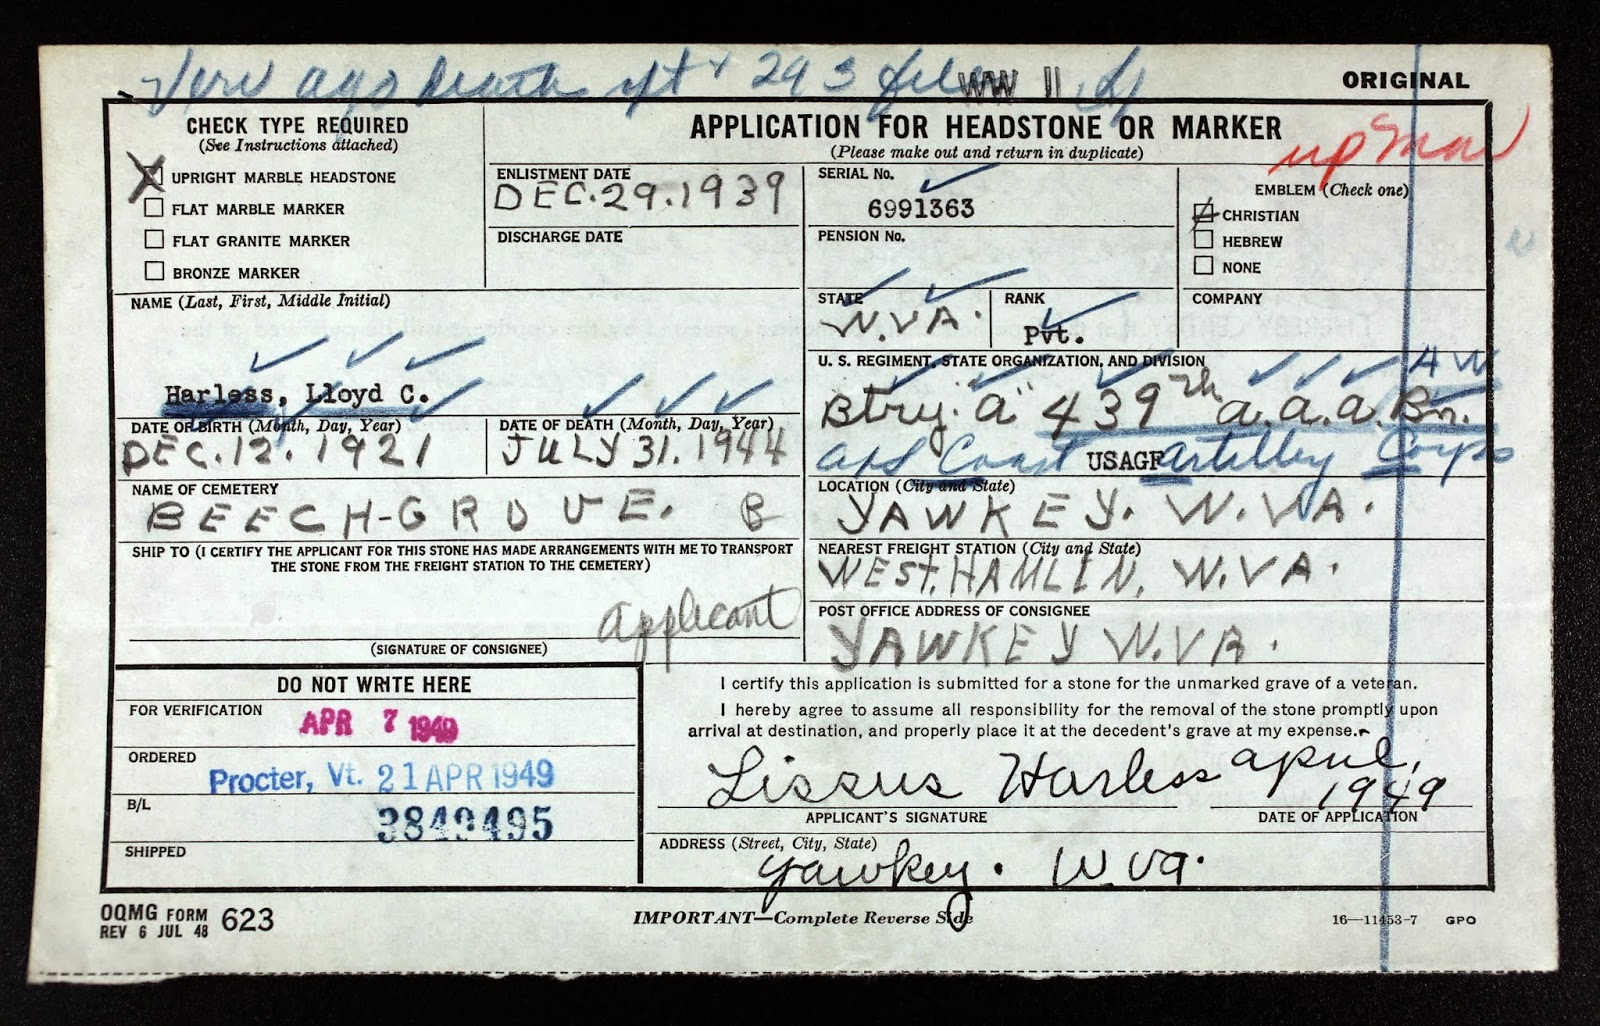 WW II
ORIGINAL
CHECK TYPE REQUIRED
(See Instructions attached)
UPRIGHT MARBLE HEADSTONE
FLAT MARBLE MARKER
FLAT GRANITE MARKER
BRONZE MARKER
APPLICATION FOR HEADSTONE OR MARKER
(Please make out and return in duplicate)
ENLISTMENT DATE
DEC. 29. 1939
DISCHARGE DATE
SERIAL No.
6991363
PENSION No.
EMBLEM (Check one)
CHRISTIAN
HEBREW
NONE
NAME (Last, First, Middle Initial)
Harless, Lloyd C.
STATE
W. VA.
RANK
Pvt.
COMPANY
U. S. REGIMENT, STATE ORGANIZATION, AND DIVISION
A W
Btry. "a" 439th a.a.a. Bn.
Coast USAGF Artillery Corps
DATE OF BIRTH (Month, Day, Year)
DEC. 12. 1921
DATE OF DEATH (Month, Day, Year)
JULY 31. 1944
NAME OF CEMETERY
BEECH-GROVE. B
LOCATION (City and State)
YAWKEY. W. VA.
SHIP TO (I CERTIFY THE APPLICANT FOR THIS STONE HAS MADE ARRANGEMENTS WITH ME TO TRANSPORT
THE STONE FROM THE FREIGHT STATION TO THE CEMETERY)
applicant
(SIGNATURE OF CONSIGNEE)
NEAREST FREIGHT STATION (City and State)
WEST. HAMLIN, W. VA.
POST OFFICE ADDRESS OF CONSIGNEE
YAWKEY W. VA.
DO NOT WRITE HERE
FOR VERIFICATION
APR 7 1949
ORDERED
Procter, Vt. 21 APR 1949
B/L
3849495
SHIPPED
I certify this application is submitted for a stone for the unmarked grave of a veteran.
I hereby agree to assume all responsibility for the removal of the stone promptly upon
arrival at destination, and properly place it at the decedent's grave at my expense.
Lissus Harless april,
1949
APPLICANT'S SIGNATURE
DATE OF APPLICATION
ADDRESS (Street, City, State)
yawkey. W. Va.
OQMG FORM 623
REV 6 JUL 48
IMPORTANT—Complete Reverse Side
16—11453-7 GPO